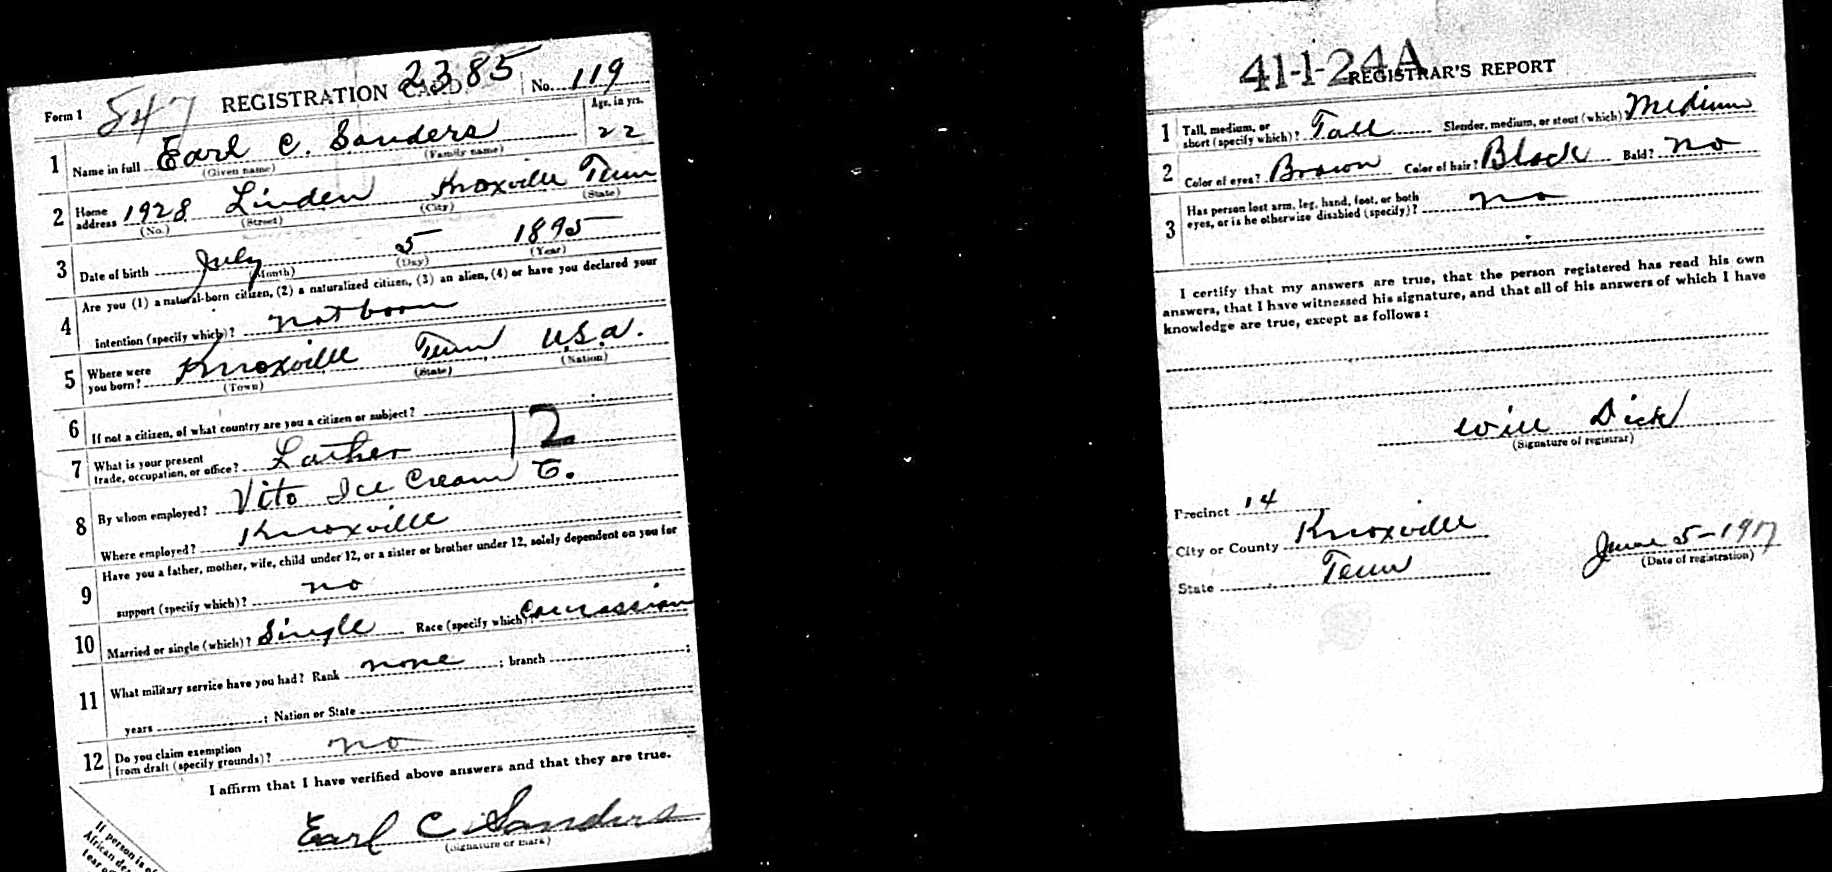 Form 1 547 REGISTRATION CARD 2385 No. 119
1 Name in full Earl C. Sanders Age, in yrs. 22
(Given name) (Family name)
2 Home address 1928 Linden Knoxville Tenn
(No.) (Street) (City) (State)
3 Date of birth July 5 1895
(Month) (Day) (Year)
4 Are you (1) a natural-born citizen, (2) a naturalized citizen, (3) an alien, (4) or have you declared your
intention (specify which)? nat born
5 Where were you born? Knoxville Tenn U.S.a.
(Town) (State) (Nation)
6 If not a citizen, of what country are you a citizen or subject?
7 What is your present trade, occupation, or office? Lather 12
8 By whom employed? Vito Ice Cream Co.
Where employed? Knoxville
9 Have you a father, mother, wife, child under 12, or a sister or brother under 12, solely dependent on you for
support (specify which)? no
10 Married or single (which)? Single Race (specify which)?
11 What military service have you had? Rank none ; branch ;
years ; Nation or State
12 Do you claim exemption from draft (specify grounds)? no
I affirm that I have verified above answers and that they are true.
Earl C Sanders
(Signature or mark)
If person is of
African de
tear o
41-1-24A REGISTRAR'S REPORT
1 Tall, medium, or short (specify which)? Tall Slender, medium, or stout (which)? Medium
2 Color of eyes? Brown Color of hair? Black Bald? No
3 Has person lost arm, leg, hand, foot, or both
eyes, or is he otherwise disabled (specify)? no
I certify that my answers are true, that the person registered has read his own
answers, that I have witnessed his signature, and that all of his answers of which I have
knowledge are true, except as follows:
Will Dick
(Signature of registrar)
Precinct 14
City or County Knoxville
State Tenn
June 5-1917
(Date of registration)